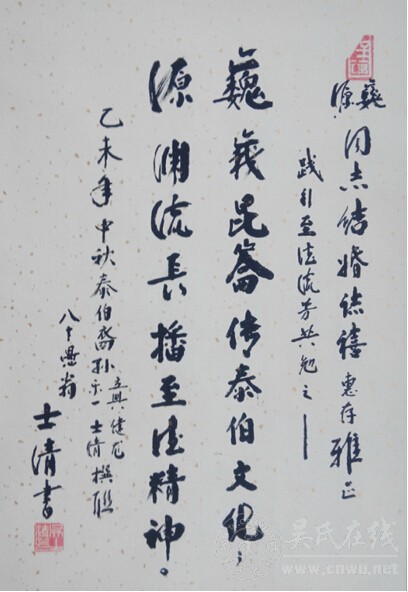 巍源同志结婚志禧惠存雅正
践行至德流芳共勉之
巍峩昆崙传泰伯文
源渊流长播至德精神。
乙未年中秋泰伯裔孙士清撰联
八十愚
士清書
吴氏在线
www.cnwu.net